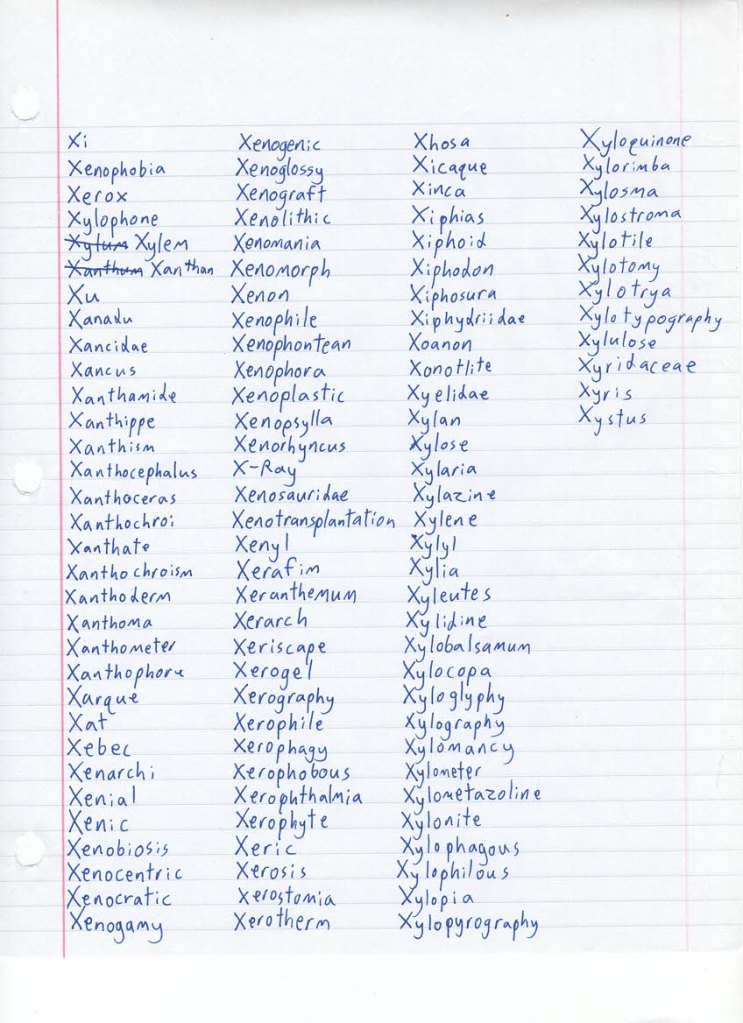 Xi
Xenophobia
Xerox
Xylophone
Xylum Xylem
Xanthum Xanthan
Xu
Xanadu
Xancidae
Xancus
Xanthamide
Xanthippe
Xanthism
Xanthocephalus
Xanthoceras
Xanthochroi
Xanthate
Xanthochroism
Xanthoderm
Xanthoma
Xanthometer
Xanthophore
Xarque
Xat
Xebec
Xenarchi
Xenial
Xenic
Xenobiosis
Xenocentric
Xenocratic
Xenogamy
Xenogenic
Xenoglossy
Xenograft
Xenolithic
Xenomania
Xenomorph
Xenon
Xenophile
Xenophontean
Xenophora
Xenoplastic
Xenopsylla
Xenorhyncus
X-Ray
Xenosauridae
Xenotransplantation
Xenyl
Xerafim
Xeranthemum
Xerarch
Xeriscape
Xerogel
Xerography
Xerophile
Xerophagy
Xerophobous
Xerophthalmia
Xerophyte
Xeric
Xerosis
Xerostomia
Xerotherm
Xhosa
Xicaque
Xinca
Xiphias
Xiphoid
Xiphodon
Xiphosura
Xiphydriidae
Xoanon
Xonotlite
Xyelidae
Xylan
Xylose
Xylaria
Xylazine
Xylene
Xylyl
Xylia
Xyleutes
Xylidine
Xylobalsamum
Xylocopa
Xyloglyphy
Xylography
Xylomancy
Xylometer
Xylometazoline
Xylonite
Xylophagous
Xylophilous
Xylopia
Xylopyrography
Xyloquinone
Xylorimba
Xylosma
Xylostroma
Xylotile
Xylotomy
Xylotrya
Xylotypography
Xylulose
Xyridaceae
Xyris
Xystus